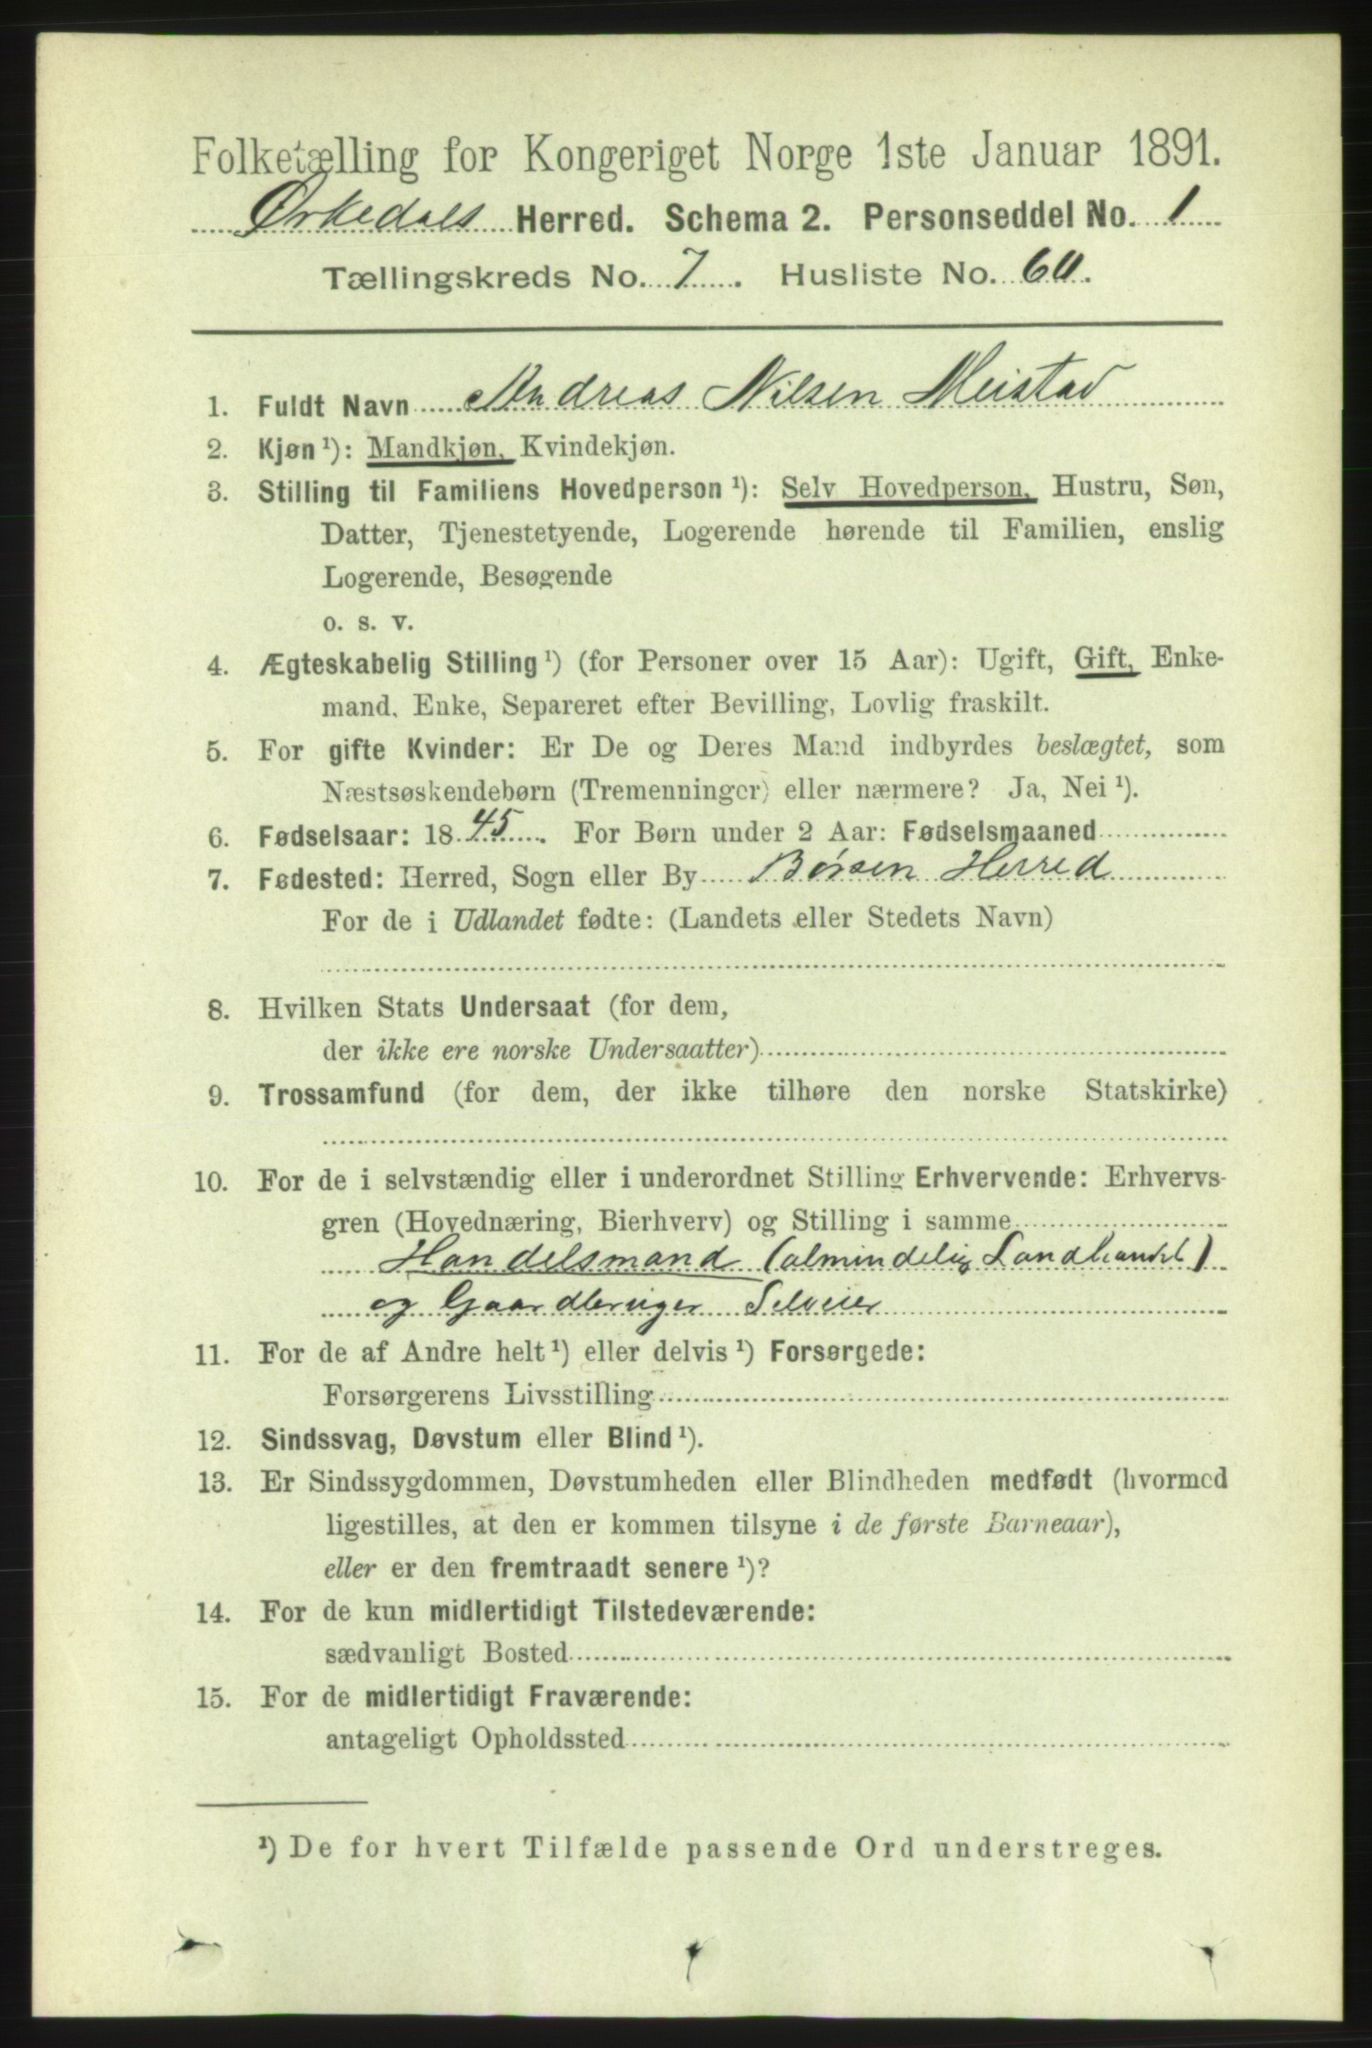 Folketælling for Kongeriget Norge 1ste Januar 1891.
Ørkedals Herred. Schema 2. Personseddel No. 1
Tællingskreds No. 7. Husliste No. 60.
1. Fuldt Navn Andreas Nilsen Meistad
2. Kjøn ¹): Mandkjøn, Kvindekjøn.
3. Stilling til Familiens Hovedperson ¹): Selv Hovedperson, Hustru, Søn,
Datter, Tjenestetyende, Logerende hørende til Familien, enslig
Logerende, Besøgende
o. s. v.
4. Ægteskabelig Stilling ¹) (for Personer over 15 Aar): Ugift, Gift, Enke-
mand, Enke, Separeret efter Bevilling, Lovlig fraskilt.
5. For gifte Kvinder: Er De og Deres Mand indbyrdes beslægtet, som
Næstsøskendebørn (Tremenninger) eller nærmere? Ja, Nei ¹).
6. Fødselsaar: 1845. For Børn under 2 Aar: Fødselsmaaned
7. Fødested: Herred, Sogn eller By Børsen Herred
For de i Udlandet fødte: (Landets eller Stedets Navn)
8. Hvilken Stats Undersaat (for dem,
der ikke ere norske Undersaatter)
9. Trossamfund (for dem, der ikke tilhøre den norske Statskirke)
10. For de i selvstændig eller i underordnet Stilling Erhvervende: Erhvervs-
gren (Hovednæring, Bierhverv) og Stilling i samme
Handelsmand (almindelig Landhandel)
og Gaardbruger Selveier
11. For de af Andre helt ¹) eller delvis ¹) Forsørgede:
Forsørgerens Livsstilling
12. Sindssvag, Døvstum eller Blind ¹).
13. Er Sindssygdommen, Døvstumheden eller Blindheden medfødt (hvormed
ligestilles, at den er kommen tilsyne i de første Barneaar),
eller er den fremtraadt senere ¹)?
14. For de kun midlertidigt Tilstedeværende:
sædvanligt Bosted
15. For de midlertidigt Fraværende:
antageligt Opholdssted
¹) De for hvert Tilfælde passende Ord understreges.